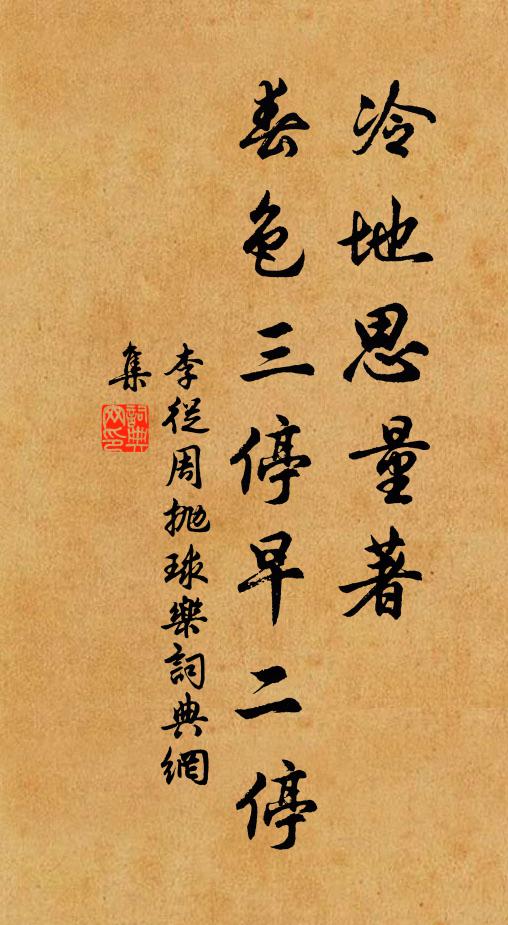 冷地思量著
春色三停早二停
李從周拋球樂詞典網
集
詞典網印